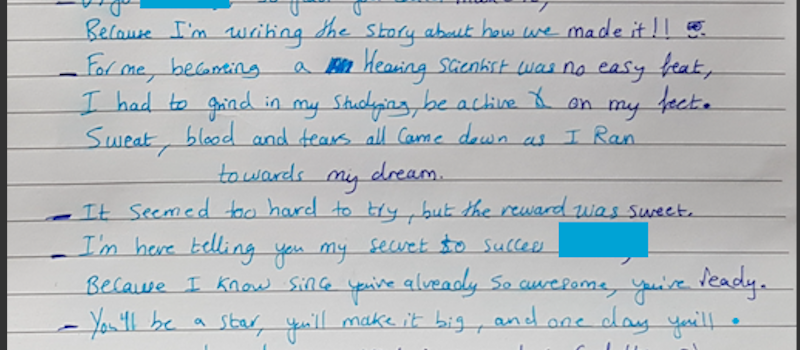 Because I'm writing the story about how we made it!!
– For me, becoming a Hearing Scientist was no easy feat,
I had to grind in my studying, be active & on my feet.
Sweat, blood and tears all came down as I Ran
towards my dream.
– It seemed too hard to try, but the reward was sweet.
– I'm here telling you my secret to succes ,
Because I know since you're already so awesome, you're ready.
– You'll be a star, you'll make it big, and one day you'll